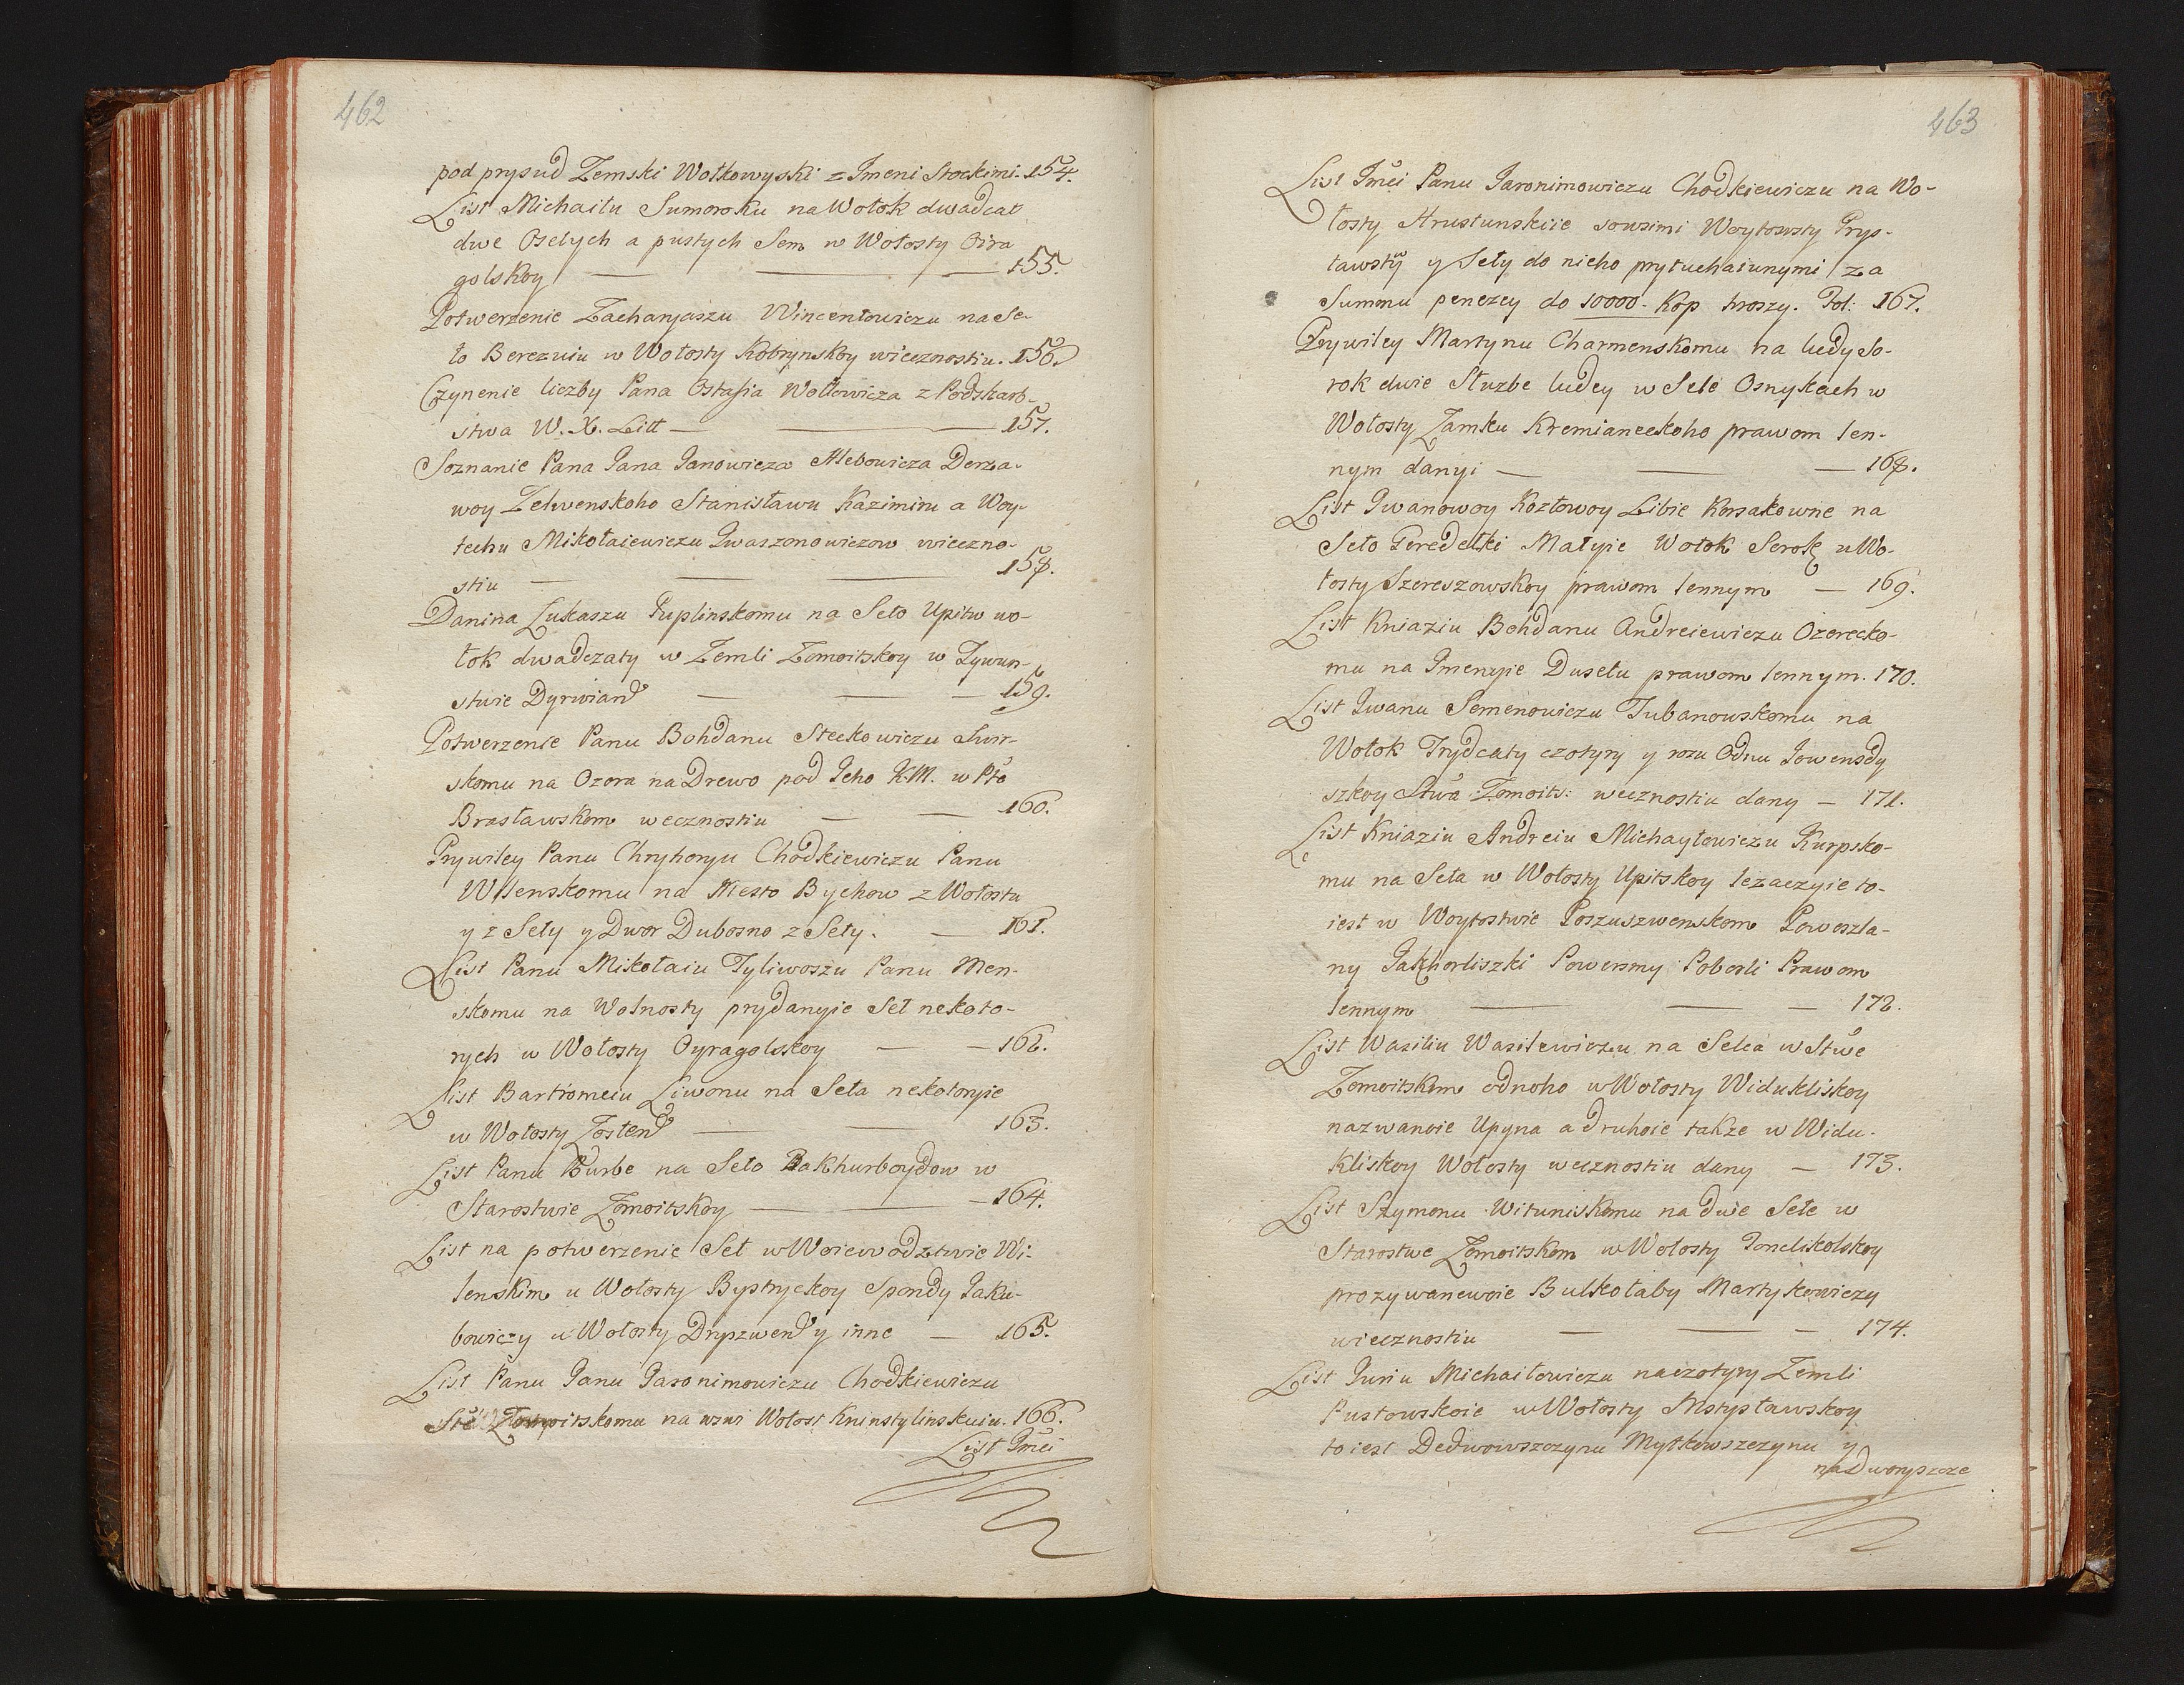 462
pod prysud Zemski Wołkowyski z Jmeni Stockimi. 154.
List Michaiłu Sumoroku na Wołok dwadcat
dwe Osełych a pustych Sem w Wołosty Oira
golskoy — — — 155.
Potwerzenie Zacharyaszu Wincentowiczu na Se-
ło Berezuiu w Wołosty Kobrynskoy wiecznostiu. 156.
Czynenie liczby Pana Ostafia Wołłowicza z Podskarb-
stwa W. X. Litt — — 157.
Soznanie Pana Jana Janowicza Hlebowicza Derża-
woy Zelwenskoho Stanisławu Kazimiru a Woy-
techu Mikołaiewiczu Jwaszonowiczow wieczno-
stiu — — — 158.
Danina Lukaszu Puplinskomu na Seło Upitu wo-
łok dwadczaty w Zemli Zomoitskoy w Tywun-
stwie Dyrwiand — — — 159.
Potwerzenie Panu Bohdanu Steckowiczu Swir-
skomu na Ozera na Drewo pod Jeho K.M. w Pło
Brasławskom wecznostiu — — 160.
Prywiley Panu Chryhoryu Chodkiewiczu Panu
Wilenskomu na Mesto Bychow z Wołostu
y z Seły y Dwor Dubosno z Seły. — 161.
List Panu Mikołaiu Tyliwoszu Panu Men-
skomu na Wolnosty prydanyie Seł nekoto-
rych w Wołosty Oyragolskoy — — 162.
List Bartromeiu Liwonu na Seła nekotoryie
w Wołosty Tostend — — 163.
List Panu Burbe na Seło Bakhurboydow w
Starostwie Zomoitskoy — — 164.
List na potwerzenie Seł w Woiewodztwie Wi-
lenskim u Wołosty Bystryckoy Spondy Jaku-
bowiczy u Wołosty Dryszwend y inne — 165.
List Panu Janu Jaronimowiczu Chodkiewiczu
Stẽ Zomoitskomu na wzwi Wołost Kninstylinskuiu. 166.
List Jmẽi
463
List Jmẽi Panu Jaronimowiczu Chodkiewiczu na Wo-
łosty Hrustunskiie sowsimi Woytowsty Prys-
tawsty y Seły do nieho prytuchaiunymi za
Summu penezey do 10000. Kop hroszy. Pol: 167.
Prywiley Martynu Charmenskomu na ludy So-
rok dwie Słuzbe ludey w Sele Osnykach w
Wołosty Zamku Kremianeckoho prawom len-
nym danyi — — — 168.
List Jwanowoy Kozłowoy Libie Korsakowne na
Seło Peredełki Małyie Wołok Serok u Wo-
łosty Szereszowskoy prawom lennym — 169.
List Kniaziu Bohdanu Andreiewiczu Ozerecko-
mu na Jmenyie Dusełu prawom lennym. 170.
List Jwanu Semenowiczu Tubanowskomu na
Wołok Trydcaty czotyry y rozu Odnu Jowensdy
szkoy Stwa Zomoits: wecznostiu dany — 171.
List Kniaziu Andreiu Michayłowiczu Kurpsko-
mu na Seła w Wołosty Upitskoy lezaczyie to-
iest w Woytostwie Poszuszwenskom Powoszla-
ny Jakhorliszki Powersmy Poberli Prawom
lennym — — — 172.
List Wasiliu Wasilewiczu na Selca w Stwe
Zomoitskom odnoho w Wołosty Widukliskoy
nazwanoie Upyna a druhoie także w Widu-
kliskoy Wołosty wecznostiu dany — 173.
List Szymonu Wituniskomu na dwie Sełe w
Starostwe Zomoitskom w Wołosty Pondikolskoy
prozywanewoie Bulkołaby Martykowiczy
wiecznostiu — — — 174.
List Juriu Michaiłowiczu na czotyry Zemli
Pustowskoie w Wołosty Mstysławskoy
to iest Dedwowszczynu Mytkowszczynu y
na Dworyszcze